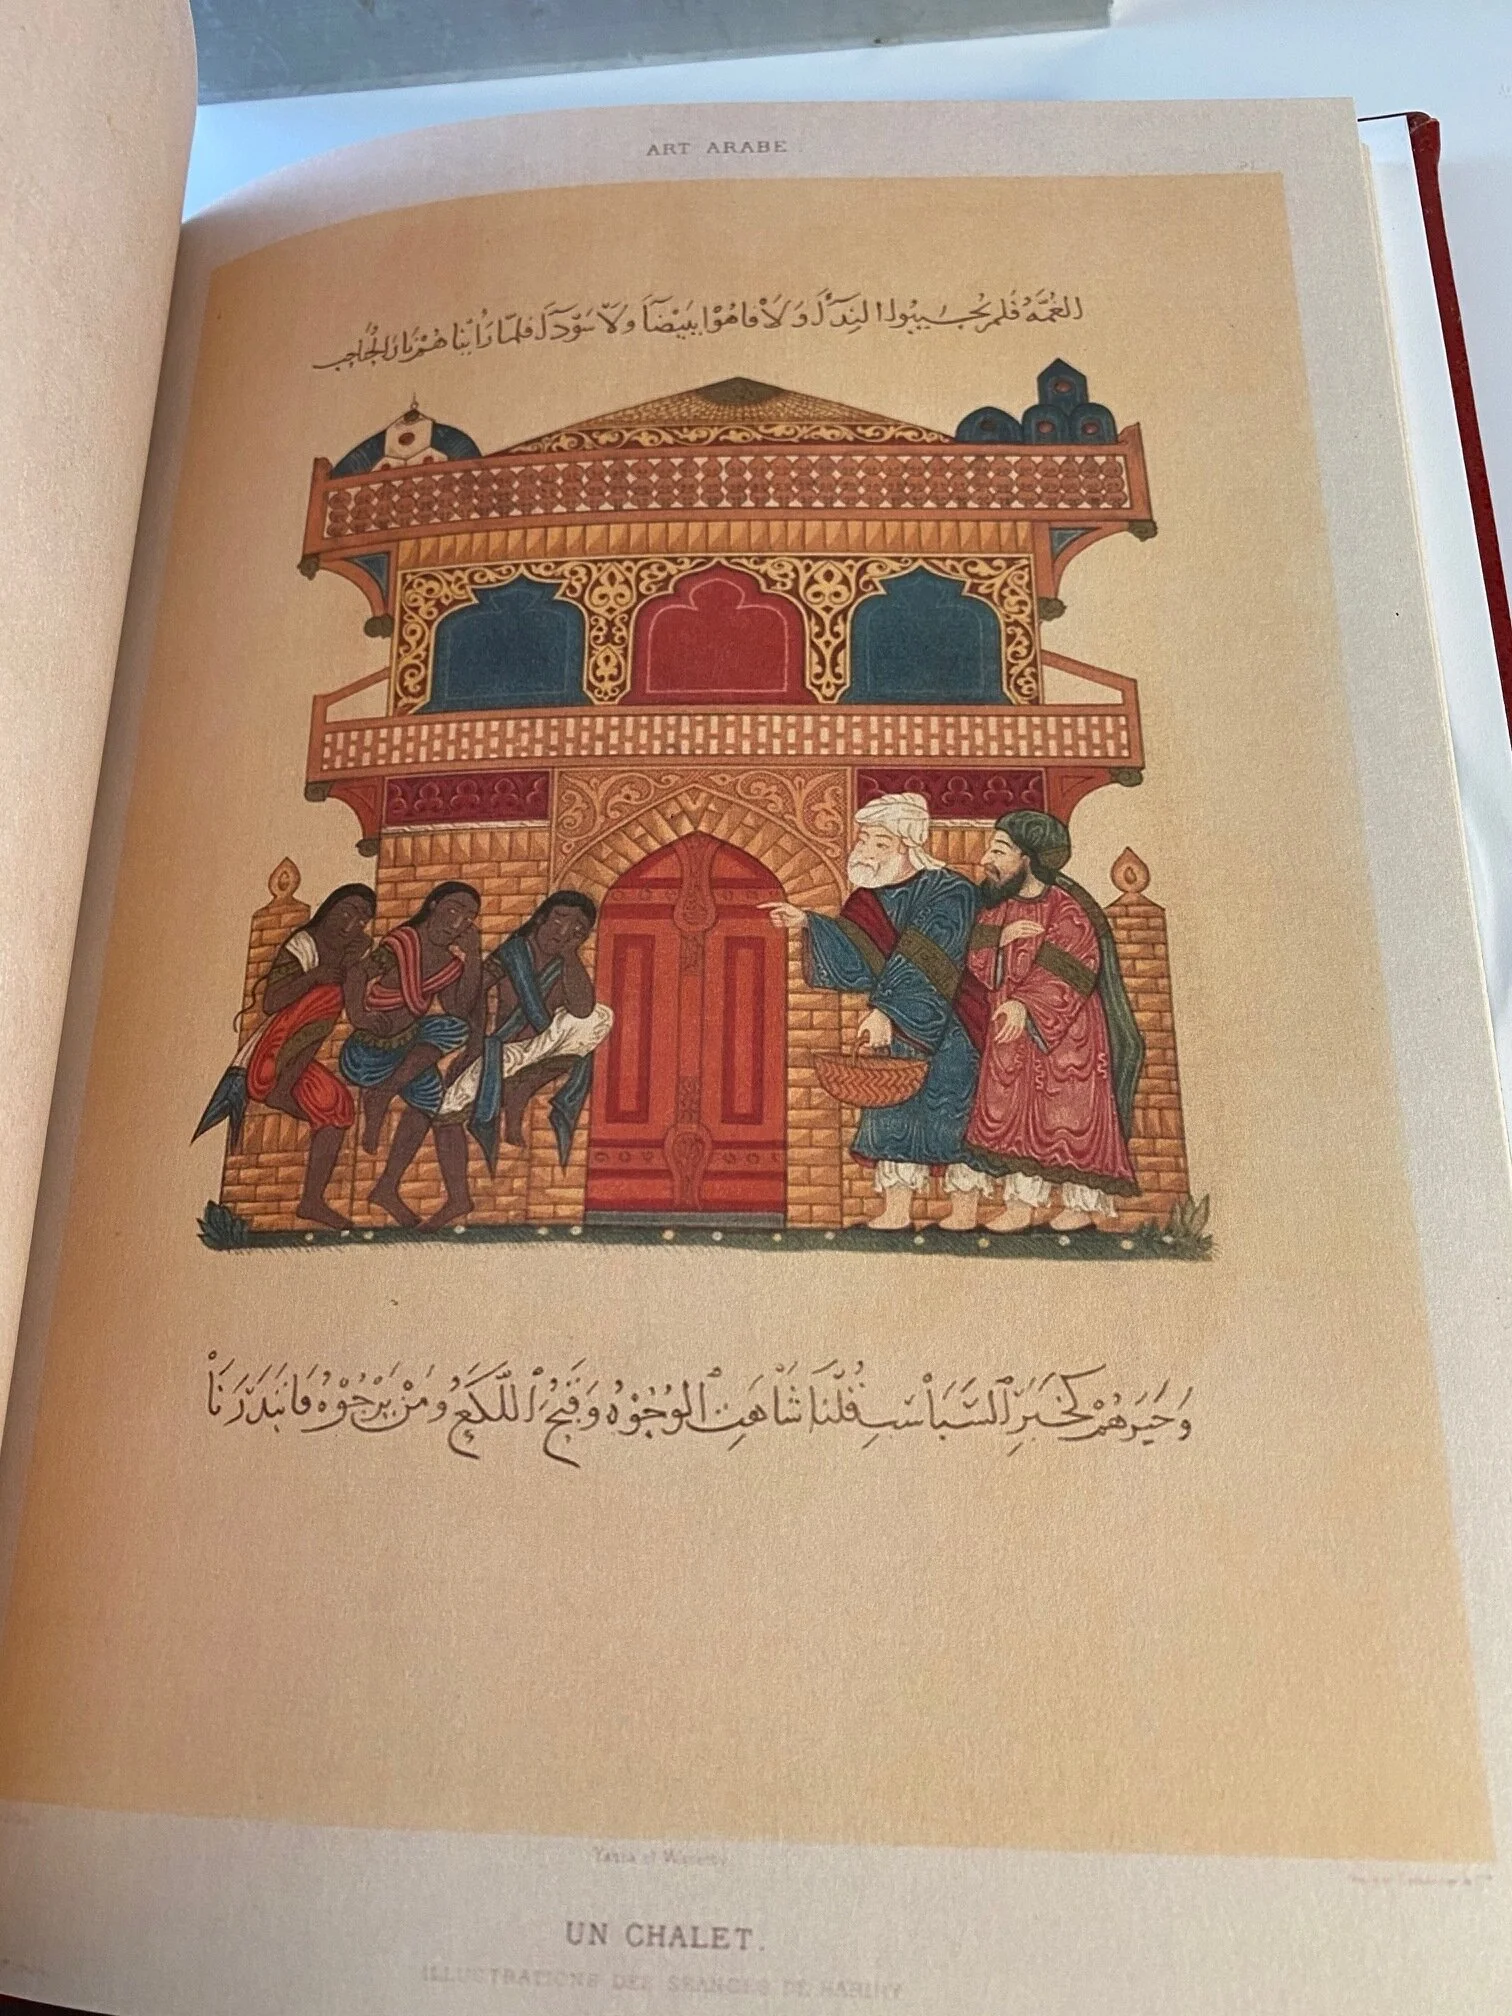 ART ARABE
الغُمَّه فَلم يُجيبُوا النِدَآءَ وَلَا فاهُوْا ببَيْضَآءَ ولَا سَوْدَآءَ فلمّا رَأَيْنا هُمْ نارَ الحُبَاحِبِ
وَخَبَرَهُمْ كخَبَرِ السَّبَاسِبِ قُلْنَا شَاهَتِ الوُجُوْهُ وَقَبُحَ اللُّكَعُ وَمَنْ يَرْجُوْهُ فَابْتَدَرَنَا
UN CHALET.
ILLUSTRATIONS DES SEANCES DE HARIRY